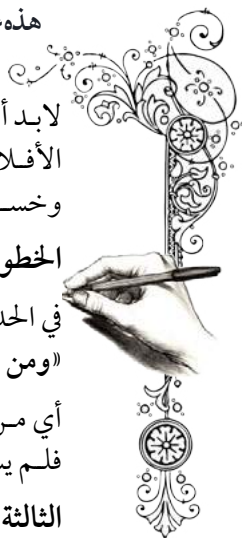 هذه
لابد أ
الأفلا
وخسـ
الخطو
في الحد
«ومن
أي مـن
فلـم يـ
الثالثة